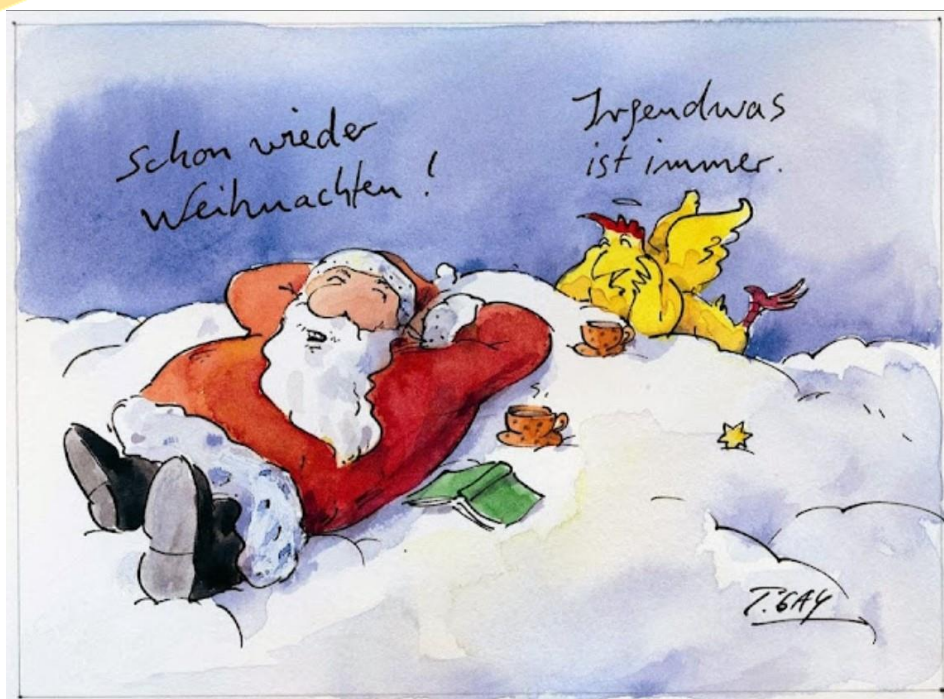 Schon wieder
Weihnachten!
Irgendwas
ist immer.
T. GAY